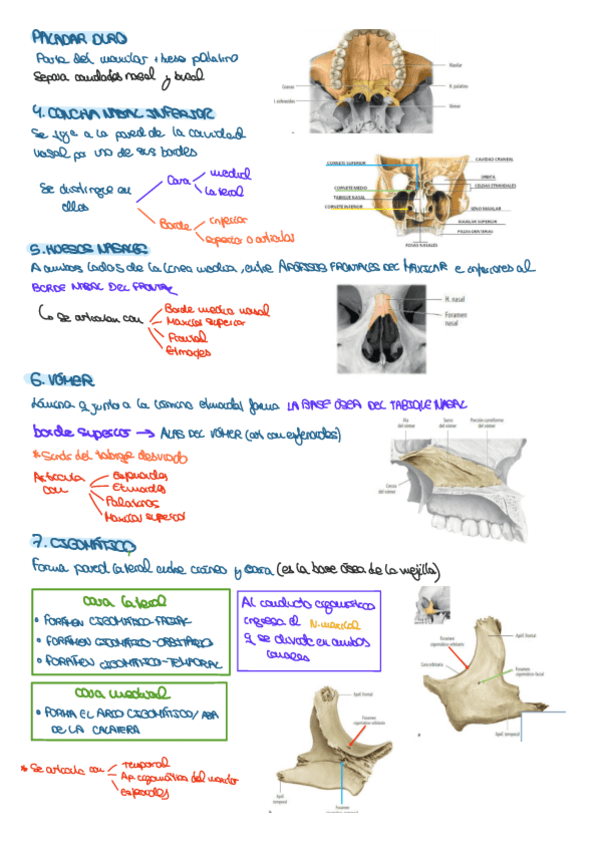 PALADAR DURO
Parte del maxilar + hueso palatino
Separa cavidades nasal y bucal
Maxilar
Coanas
H. palatino
Vómer
4. CONCHA NASAL INFERIOR
Se fija a la pared de la cavidad
nasal por uno de sus bordes
Se distingue en
ellas
Cara
medial
lateral
Borde
inferior
superior o articular
CORNETE SUPERIOR
CAVIDAD CRANEAL
ÓRBITA
CELDAS ETMOIDALES
CORNETE MEDIO
TABIQUE NASAL
CORNETE INFERIOR
SENO MAXILAR
MAXILAR SUPERIOR
PIEZAS DENTARIAS
FOSAS NASALES
5. HUESOS NASALES
A ambos lados de la línea media, entre APÓFISIS FRONTALES DEL MAXILAR e inferiores al
BORDE NASAL DEL FRONTAL
se articulan con
Borde medio nasal
Maxilar superior
Frontal
Etmoides
H. nasal
Foramen
nasal
6. VÓMER
Lámina q junto a la lámina etmoidal forma LA BASE ÓSEA DEL TABIQUE NASAL
borde superior → ALAS DEL VÓMER (art con esfenoides)
* Sindr del tabique desviado
Articula
con
Esfenoides
Etmoides
Palatinos
Maxilar superior
Ala
del vómer
Surco
del vómer
Porción cuneiforme
del vómer
Cresta
del vómer
7. CIGOMÁTICO
Forma pared lateral entre cráneo y cara (es la base ósea de la mejilla)
cara lateral
• FORAMEN CIGOMATICO-FACIAL
• FORAMEN CIGOMÁTICO-ORBITARIO
• FORAMEN CIGOMATICO-TEMPORAL
Al conducto cigomático
ingresa el N. maxilar
q se divide en ambos
canales
cara medial
• FORMA EL ARCO CIGOMÁTICO/ASA
DE LA CALAVERA
* Se articula con
Temporal
Ap. cigomática del maxilar
Esfenoides
Apóf. frontal
Foramen
cigomático-orbitario
Apóf.
temporal
Foramen
cigomático-temporal
Apóf. frontal
Foramen
cigomático-orbitario
Cara orbitaria
Foramen
cigomático-facial
Apóf. temporal